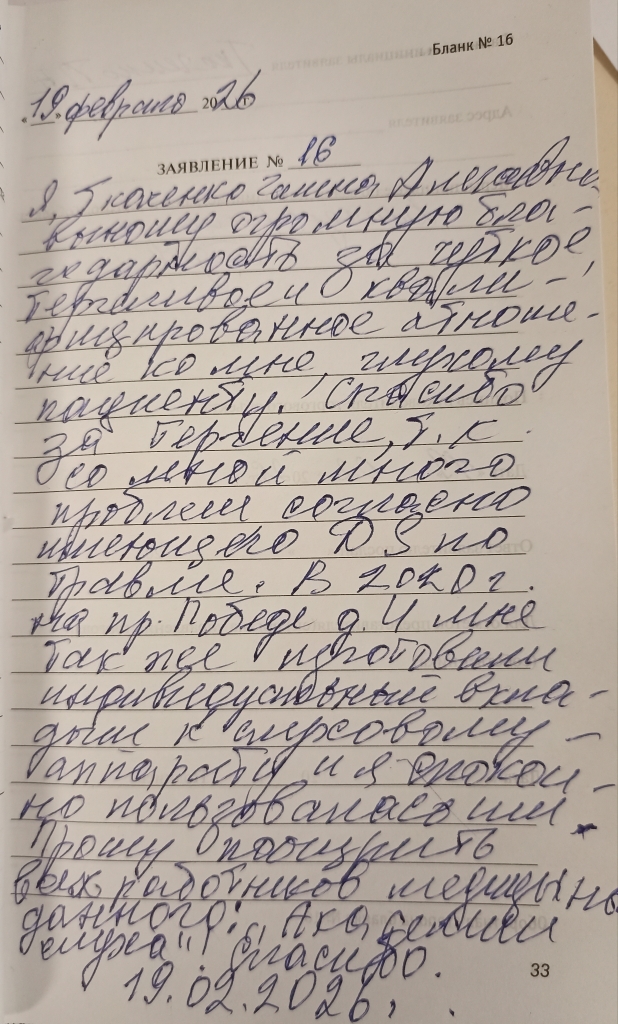 Бланк № 16
„19" февраля 2026
ЗАЯВЛЕНИЕ № 16
Я, Ткаченко Галина Алексеевна
выношу огромную бла-
годарность за чуткое,
терпеливое и квали-
фицированное отноше-
ние ко мне, глухому
пациенту. Спасибо
за терпение, т.к.
со мной много
проблем согласно
имеющего DS по
травме. В 2020 г.
на пр. Победе д. 4 мне
так же изготовили
индивидуальный вкла-
дыш к слуховому-
аппарату и я спокой-
но пользовалась им.
Прошу поощрить
всех работников
данного: „Академии
слуха"! Спасибо.
19.02.2026,
33